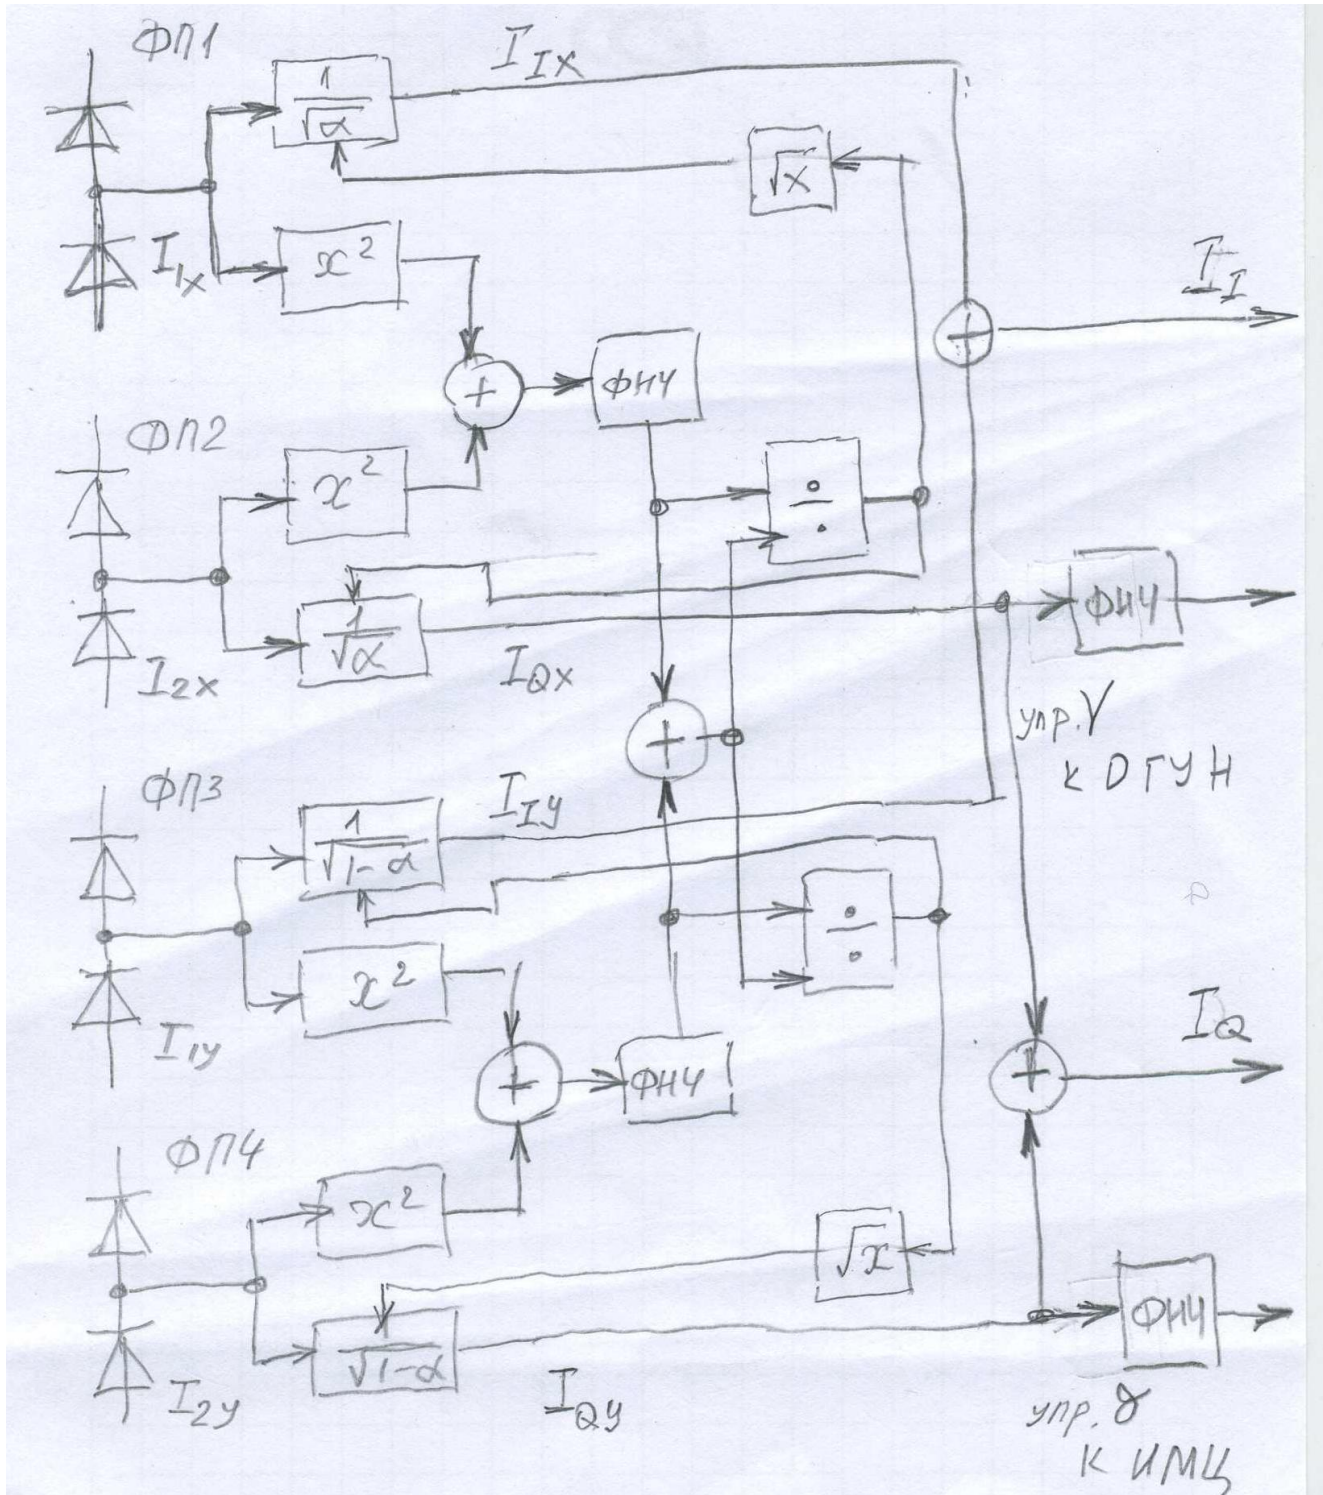 ФП1
I_{IX}
1/√α
√x
I_{1X}
x²
I_I
+
+
ФНЧ
ФП2
x²
÷
1/√α
ФНЧ
I_{2X}
I_{QX}
+
упр. γ
к ОГУН
ФП3
I_{IY}
1/√1-α
÷
x²
I_{1Y}
I_Q
+
ФНЧ
+
ФП4
x²
√x
1/√1-α
ФНЧ
I_{2Y}
I_{QY}
упр. δ
к ИМЦ